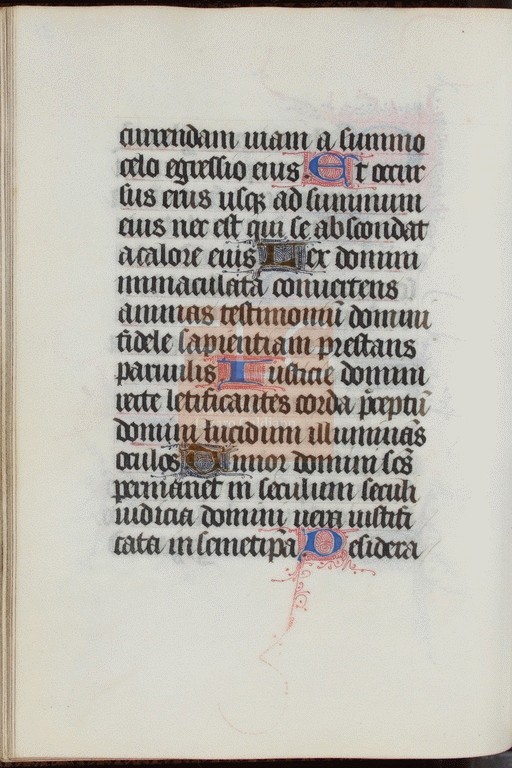 currendam uiam a summo
celo egressio eius. Et occur
sus eius usq; ad summum
eius nec est qui se abscondat
a calore eius Lex domini
immaculata conuertens
animas testimoniū domini
fidele sapientiam prestans
paruulis Iusticie domini
recte letificantes corda p̄ceptū
domini lucidum illuminās
oculos Timor domini sc̄s
permanet in seculum seculi
iudicia domini uera iustifi
cata in semetip̄a Desidera